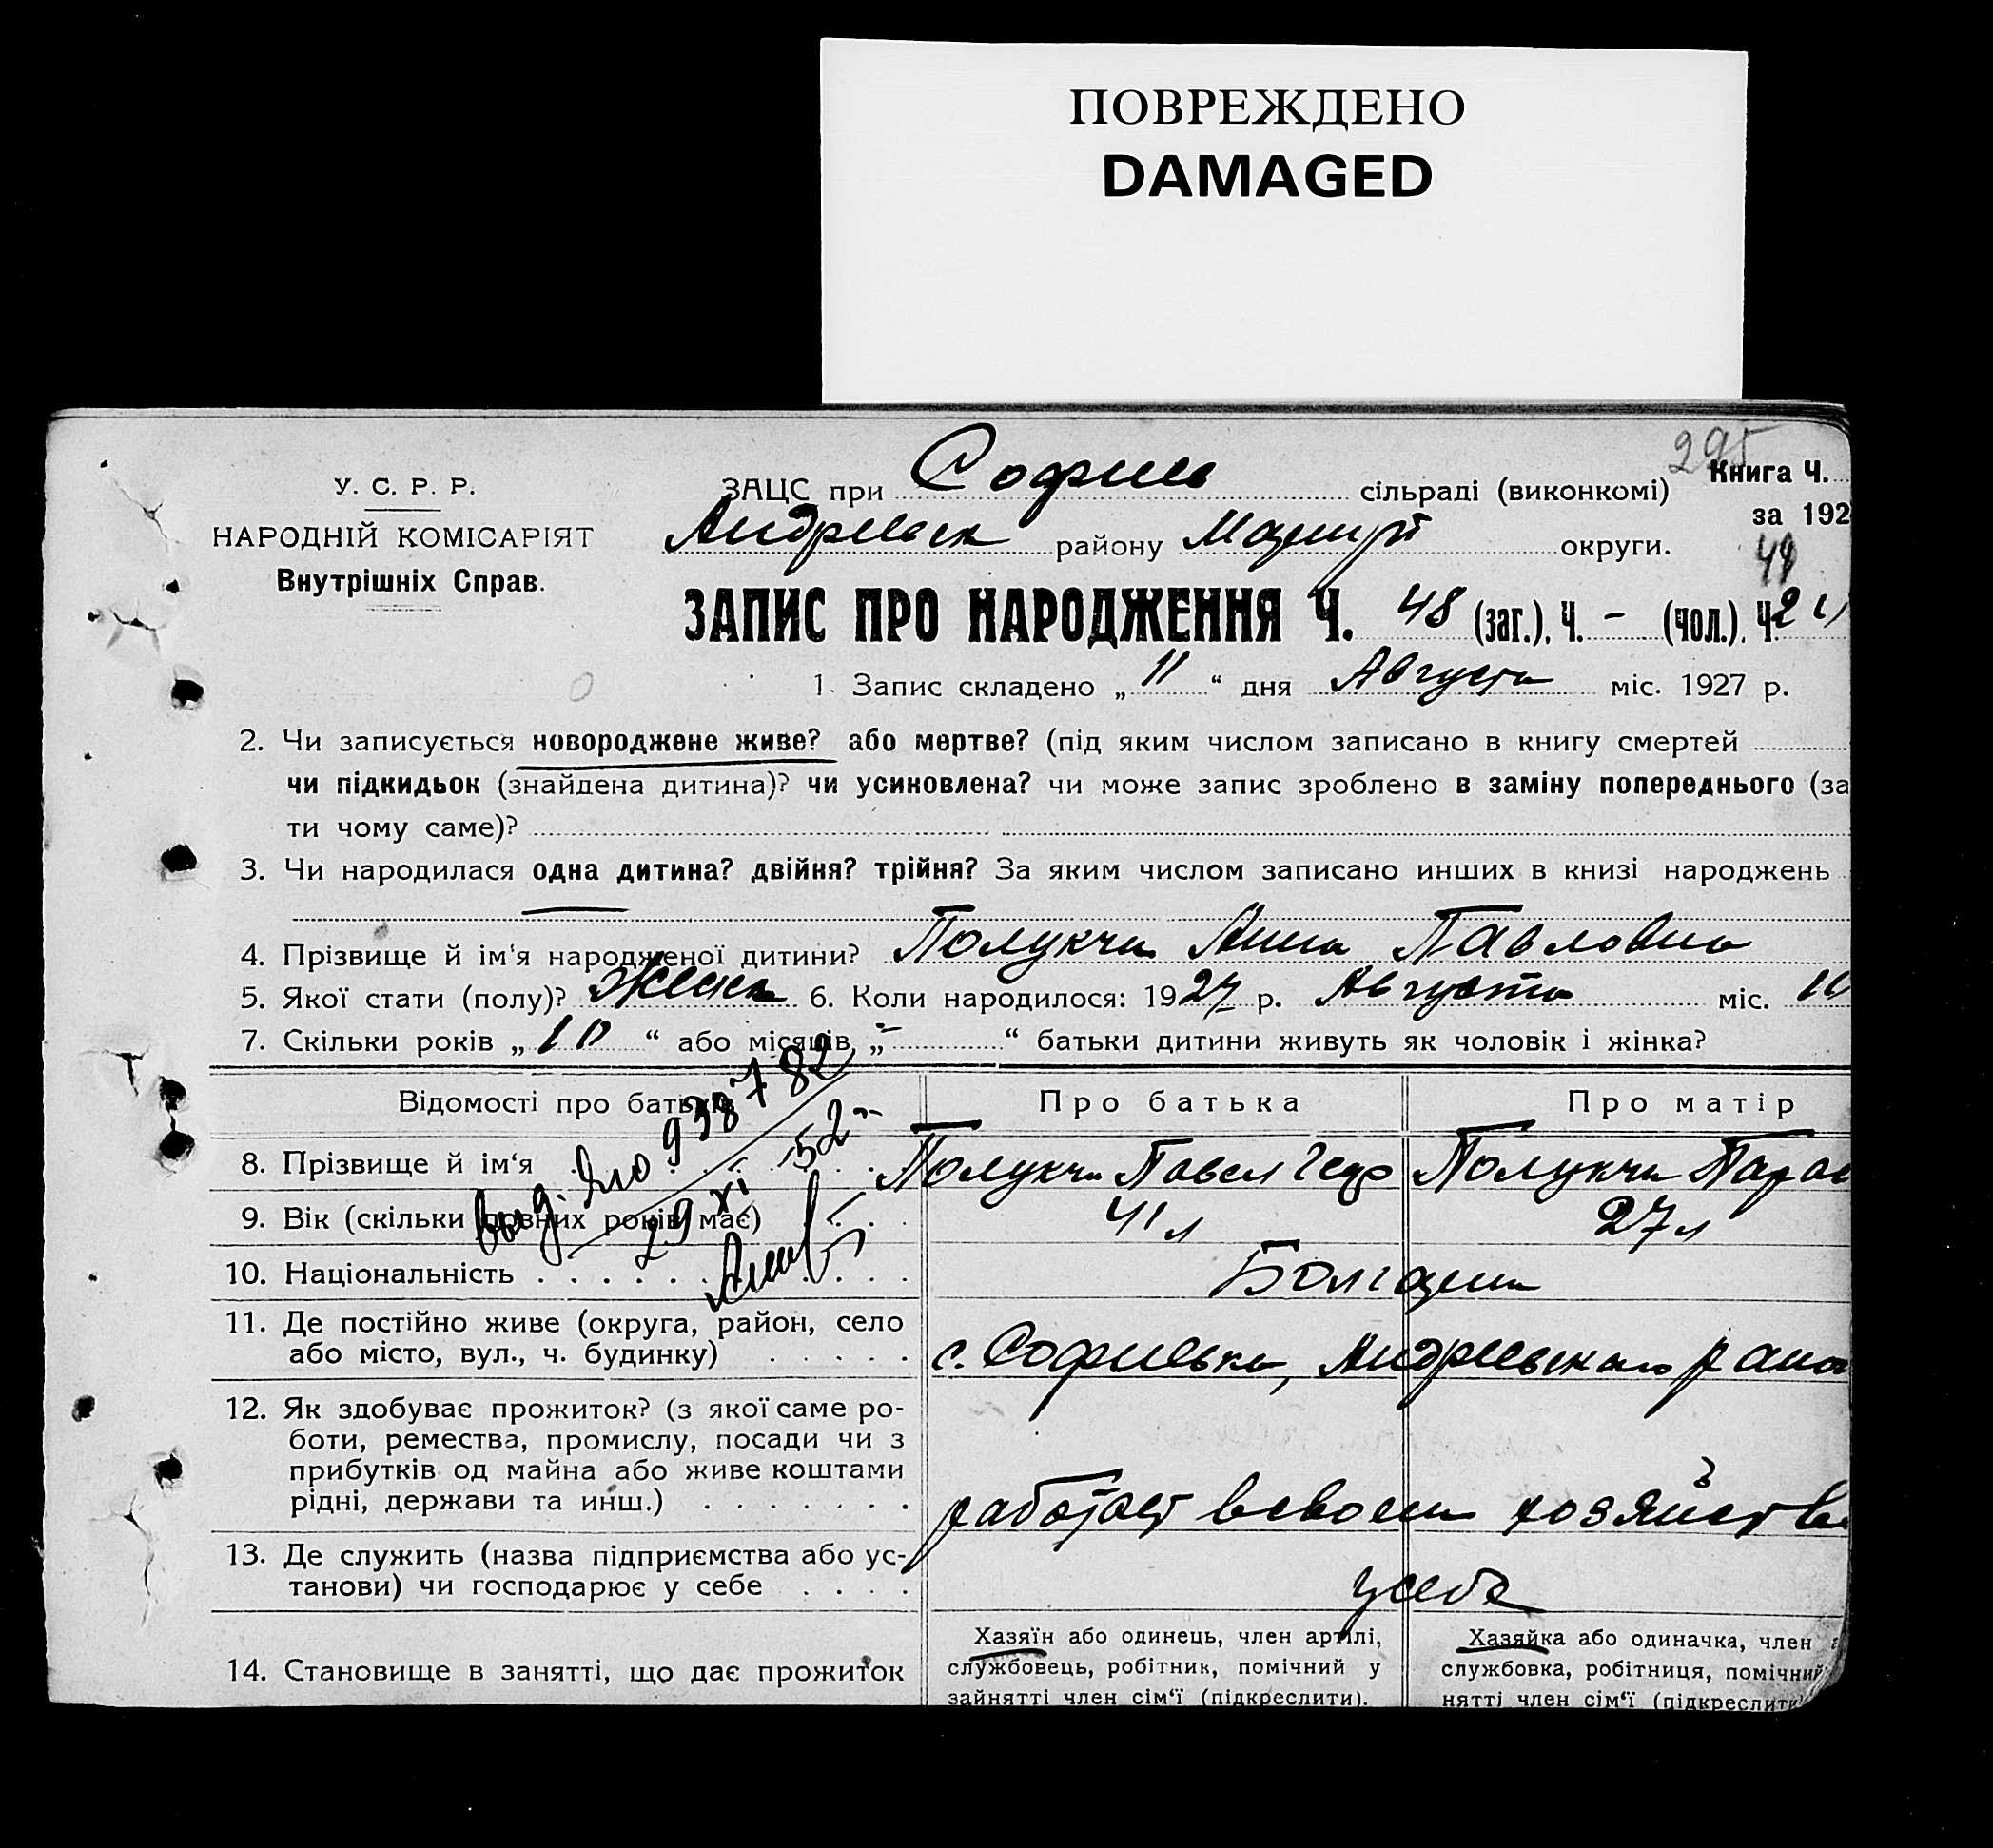 ПОВРЕЖДЕНО
DAMAGED
295
У. С. Р. Р.
НАРОДНІЙ КОМІСАРІЯТ
Внутрішніх Справ.
ЗАЦС при Софиев сільраді (виконкомі)
Книга Ч.
за 192
Андреевск району Мариуп округи.
49
ЗАПИС ПРО НАРОДЖЕННЯ Ч. 48 (заг.), Ч. – (чол.), Ч.
1. Запис складено „ 11 “ дня Августа міс. 1927 р.
2. Чи записується новороджене живе? або мертве? (під яким числом записано в книгу смертей
чи підкидьок (знайдена дитина)? чи усиновлена? чи може запис зроблено в заміну попереднього (за
ти чому саме)?
3. Чи народилася одна дитина? двійня? трійня? За яким числом записано инших в книзі народжень
4. Прізвище й ім‘я народженої дитини? Полукчи Анна Павловна
5. Якої стати (полу)? Женск 6. Коли народилося: 1927 р. Августа міс. 10
7. Скільки років „ 10 “ або місяців „ – “ батьки дитини живуть як чоловік і жінка?
Відомості про батьків
Про батька
Про матір
Выд. 938782
29 XI 52
8. Прізвище й ім‘я
Полукчи Павел Геор
Полукчи Парас
9. Вік (скільки повних років має)
41 л
27 л
10. Національність
Болгары
11. Де постійно живе (округа, район, село
або місто, вул., ч. будинку)
с. Софиевка, Андреевского района
12. Як здобуває прожиток? (з якої саме ро-
боти, ремества, промислу, посади чи з
прибутків од майна або живе коштами
рідні, держави та инш.)
работает в своем хозяйстве
13. Де служить (назва підприємства або ус-
танови) чи господарює у себе
у себе
14. Становище в занятті, що дає прожиток
Хазяїн або одинець, член артілі,
службовець, робітник, помічний у
зайнятті член сім‘ї (підкреслити).
Хазяйка або одиначка, член
службовка, робітниця, помічний
нятті член сім‘ї (підкреслити)